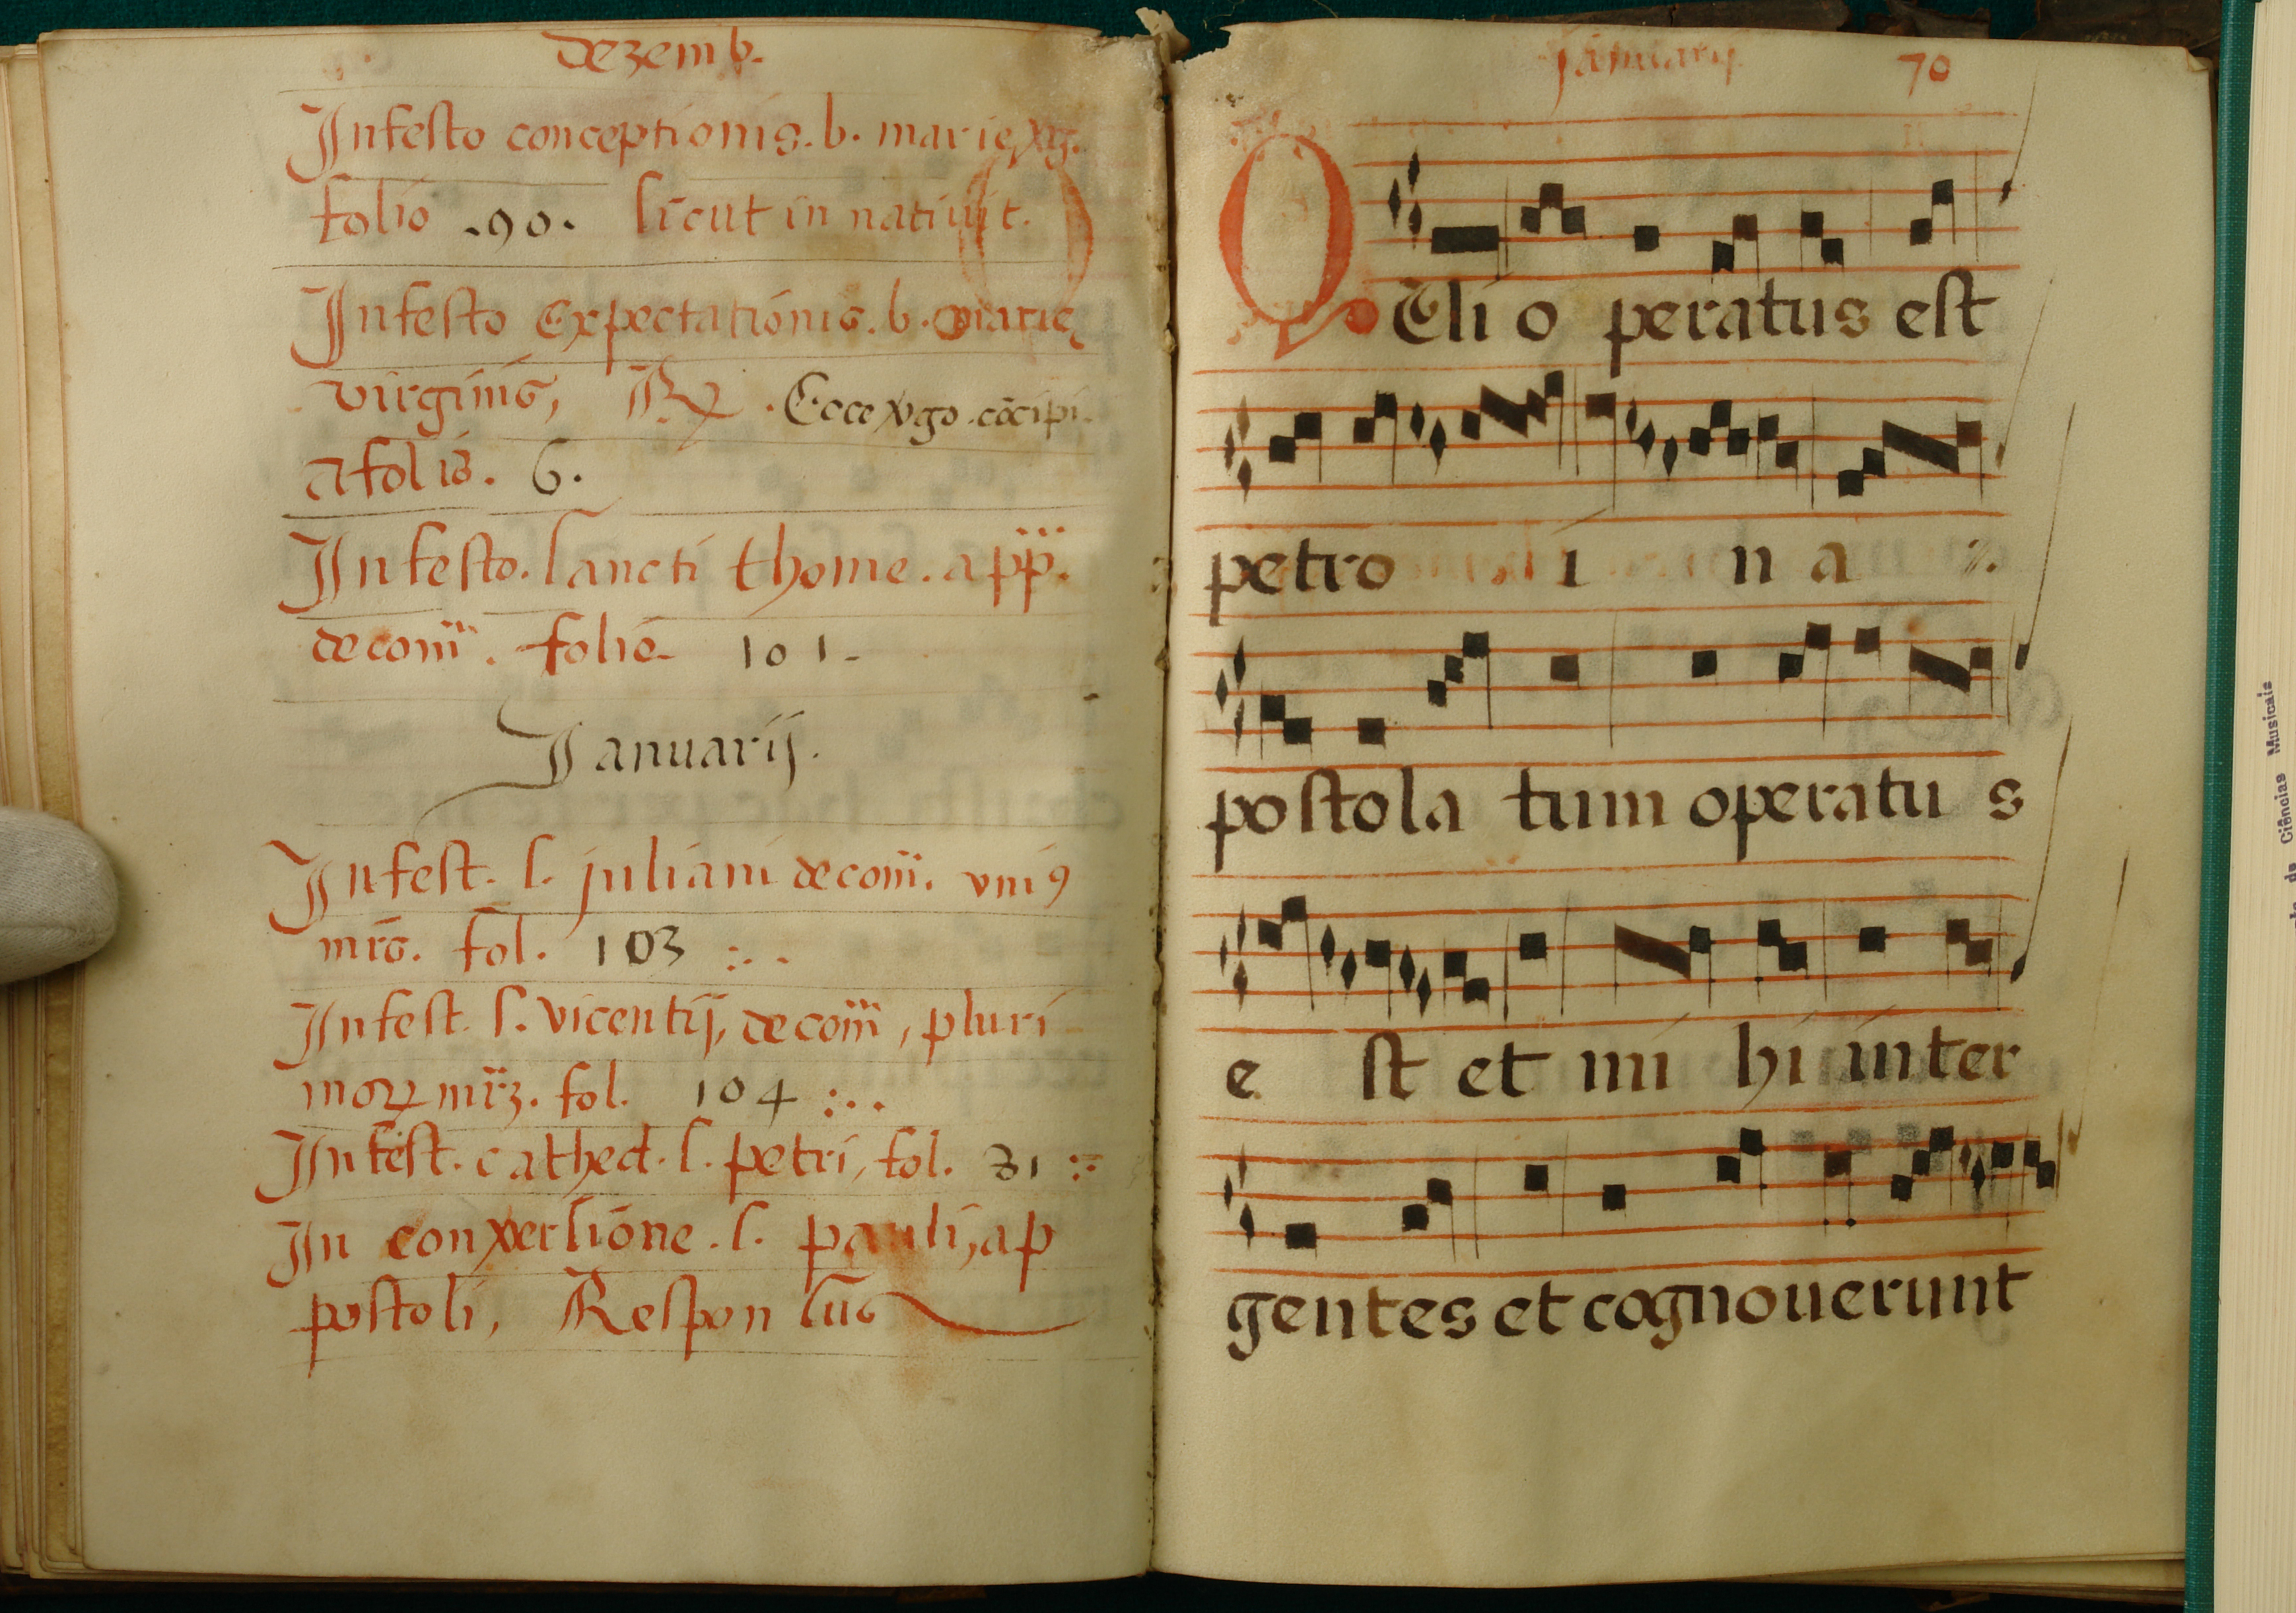 dezemb.
Infesto conceptionis. b. marie, xg̃.
folio .90. sicut in natiuit.
Infesto Expectationis. b. marie
virginis, R⁊ . Ecce xgo. cõcipi.
a folis. 6.
Infesto. sancti thome. app̃.
de com̃. folio 101.
Januarij.
Infest. s. juliani de com̃. vniꝯ
mr̃s. fol. 103 :..
Infest. s. vicentij, de com̃, pluri
moꝝ mr̃z. fol. 104 :..
Infest. cathed. s. petri, fol. 31 :-
In conxersione. s. pauli, ap
postoli, Responsus
Januarij. 70
QEli operatus est
petro i n a ⁒.
postola tum operatu s
e st et mi hi inter
gentes et cognouerunt
de Ciências Musicais